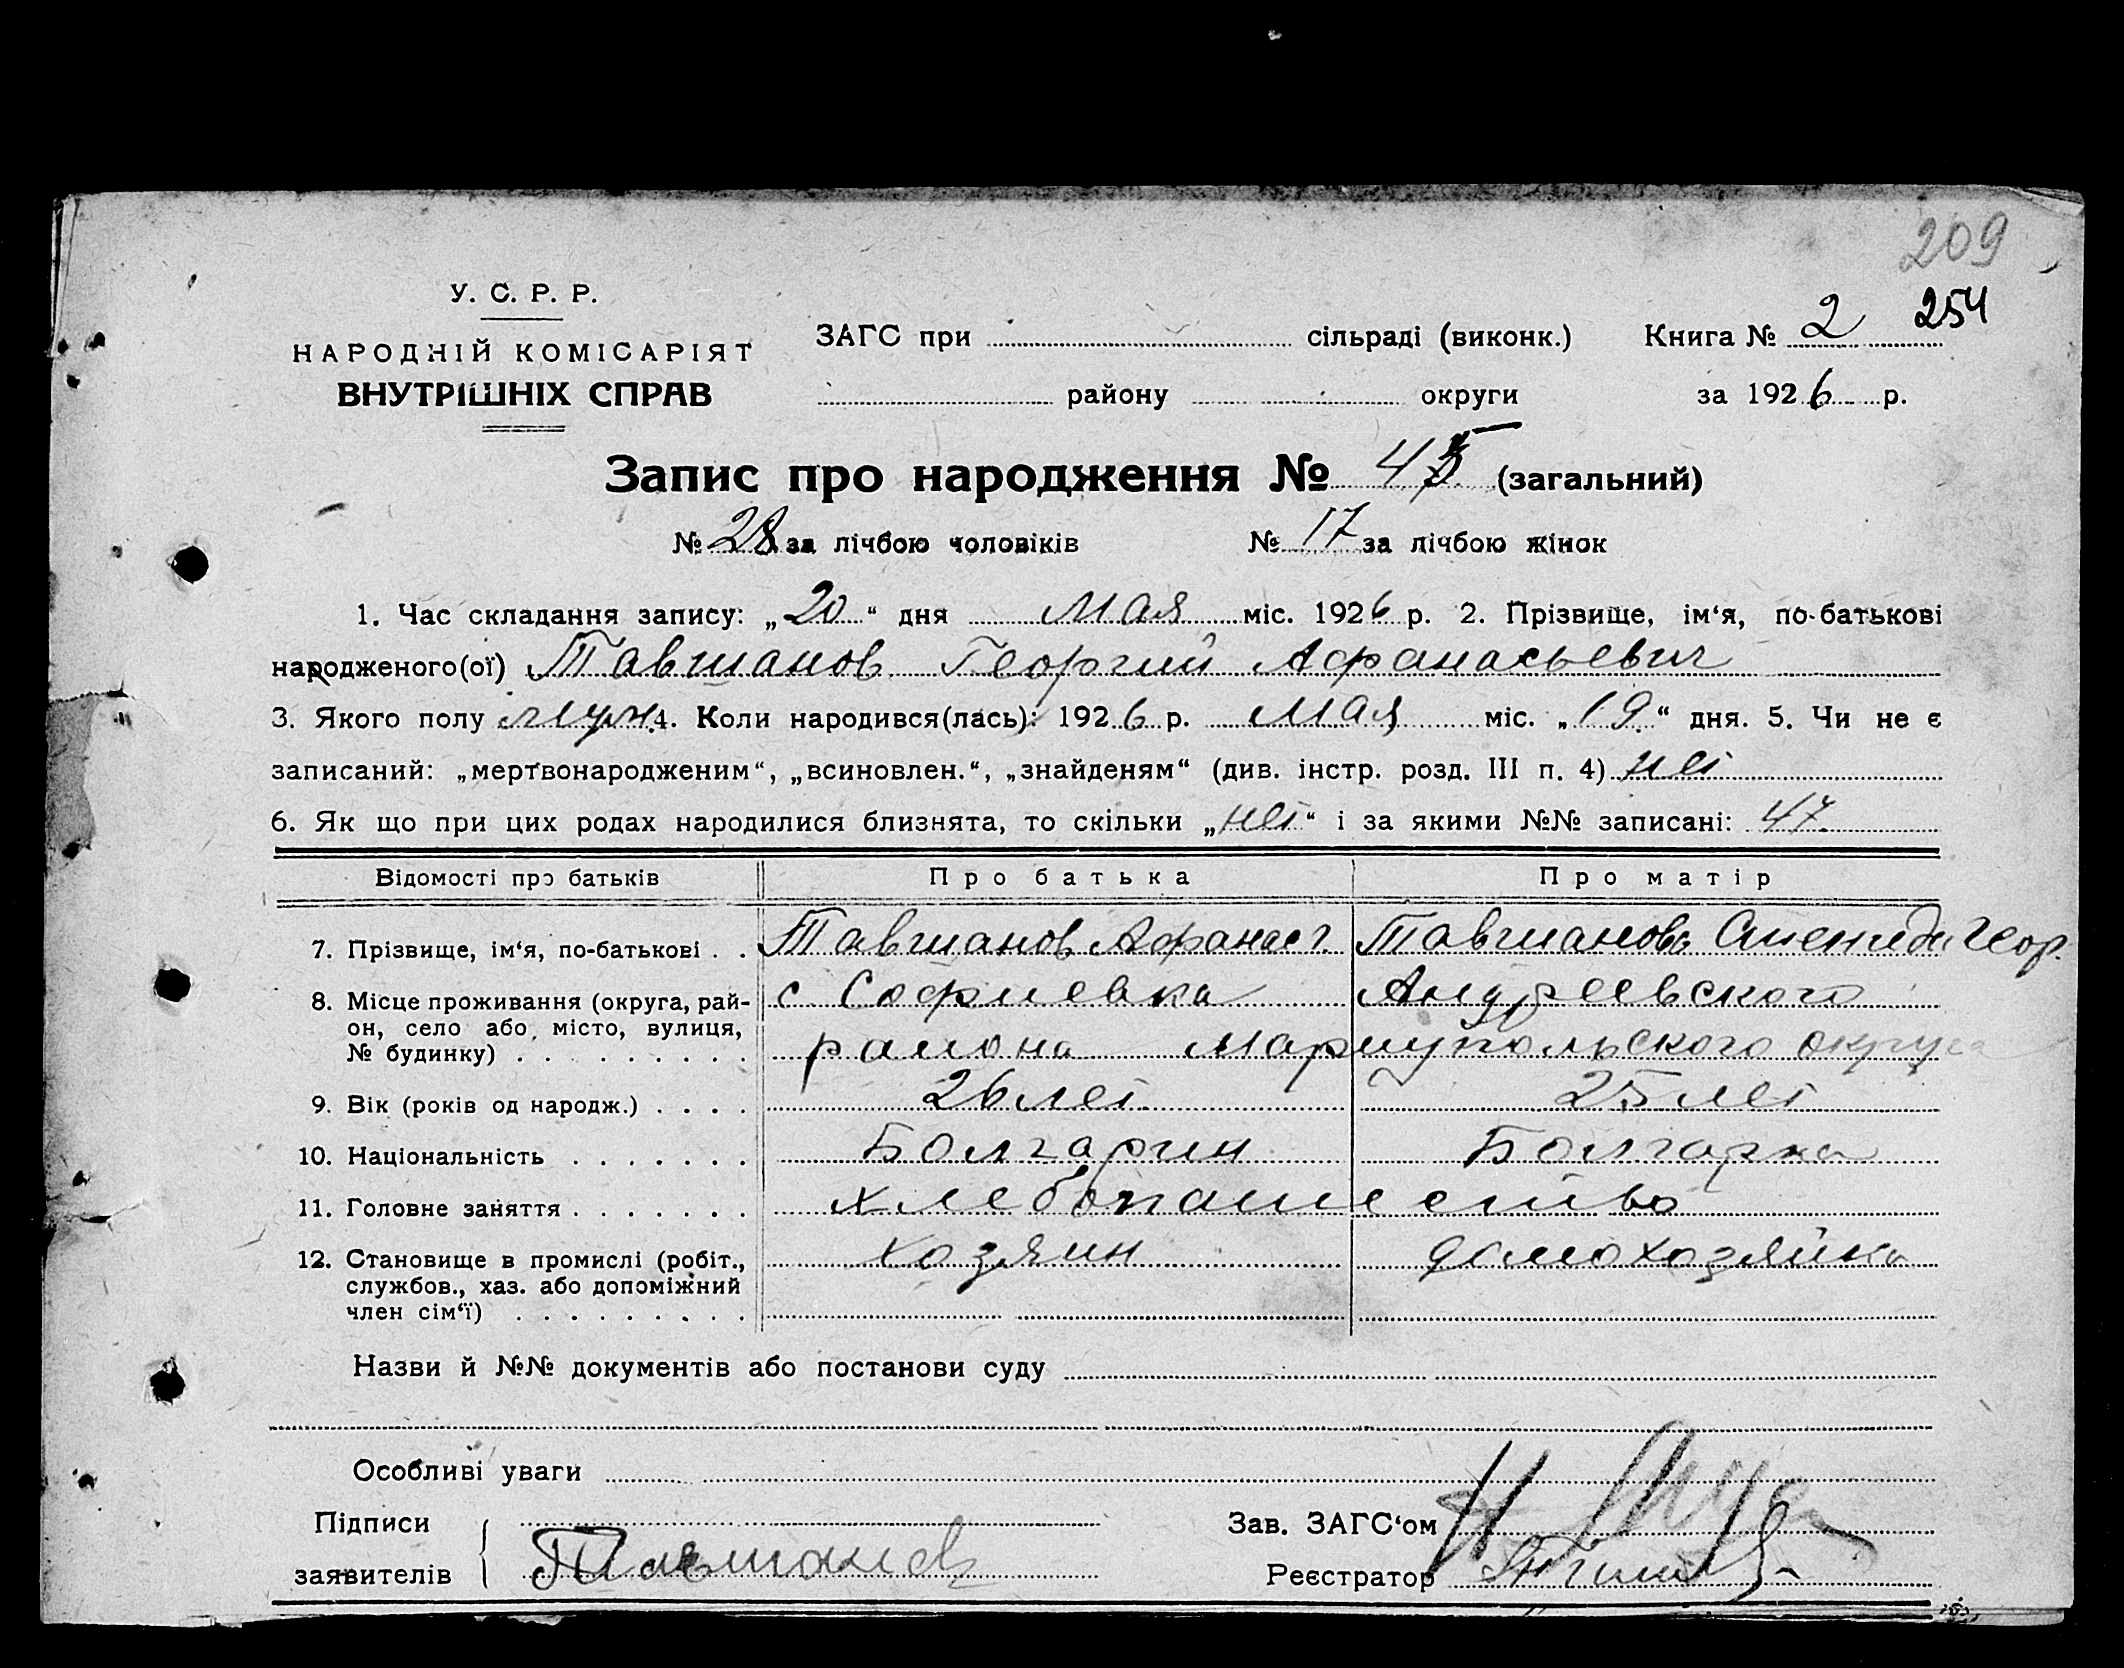 209
254
У. С. Р. Р.
НАРОДНІЙ КОМІСАРІЯТ
ВНУТРІШНІХ СПРАВ
ЗАГС при сільраді (виконк.) Книга № 2
району округи за 1926 р.
Запис про народження № 45 (загальний)
№ 28 за лічбою чоловіків № 17 за лічбою жінок
1. Час складання запису: „20“ дня Мая міс. 1926 р. 2. Прізвище, ім‘я, по-батькові
народженого(ої) Тавшанов Георгий Афанасьевич
3. Якого полу муж. 4. Коли народився(лась): 1926 р. Мая міс. „19“ дня. 5. Чи не є
записаний: „мертвонародженим“, „всиновлен.“, „знайденям“ (див. інстр. розд. III п. 4) нет
6. Як що при цих родах народилися близнята, то скільки „нет“ і за якими №№ записані: 47
Відомості про батьків Про батька Про матір
7. Прізвище, ім‘я, по-батькові . . Тавшанов Афанас Тавшанова Геор.
8. Місце проживання (округа, рай-он, село або місто, вулиця, № будинку) с Софиевка Андреевского
района Мариупольского округа
9. Вік (років од народж.) . . . . 26 лет 25 лет
10. Національність . . . . . . . Болгарин Болгарка
11. Головне заняття . . . . . . . хлебопашество
12. Становище в промислі (робіт., службов., хаз. або допоміжний член сім‘ї) . . . . . . . . . хозяин домохозяйка
Назви й №№ документів або постанови суду
Особливі уваги
Підписи
заявителів Тавшанов
Зав. ЗАГС‘ом
Реєстратор